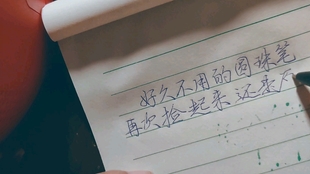 好久不用的圆珠笔
再次捡起来还亲